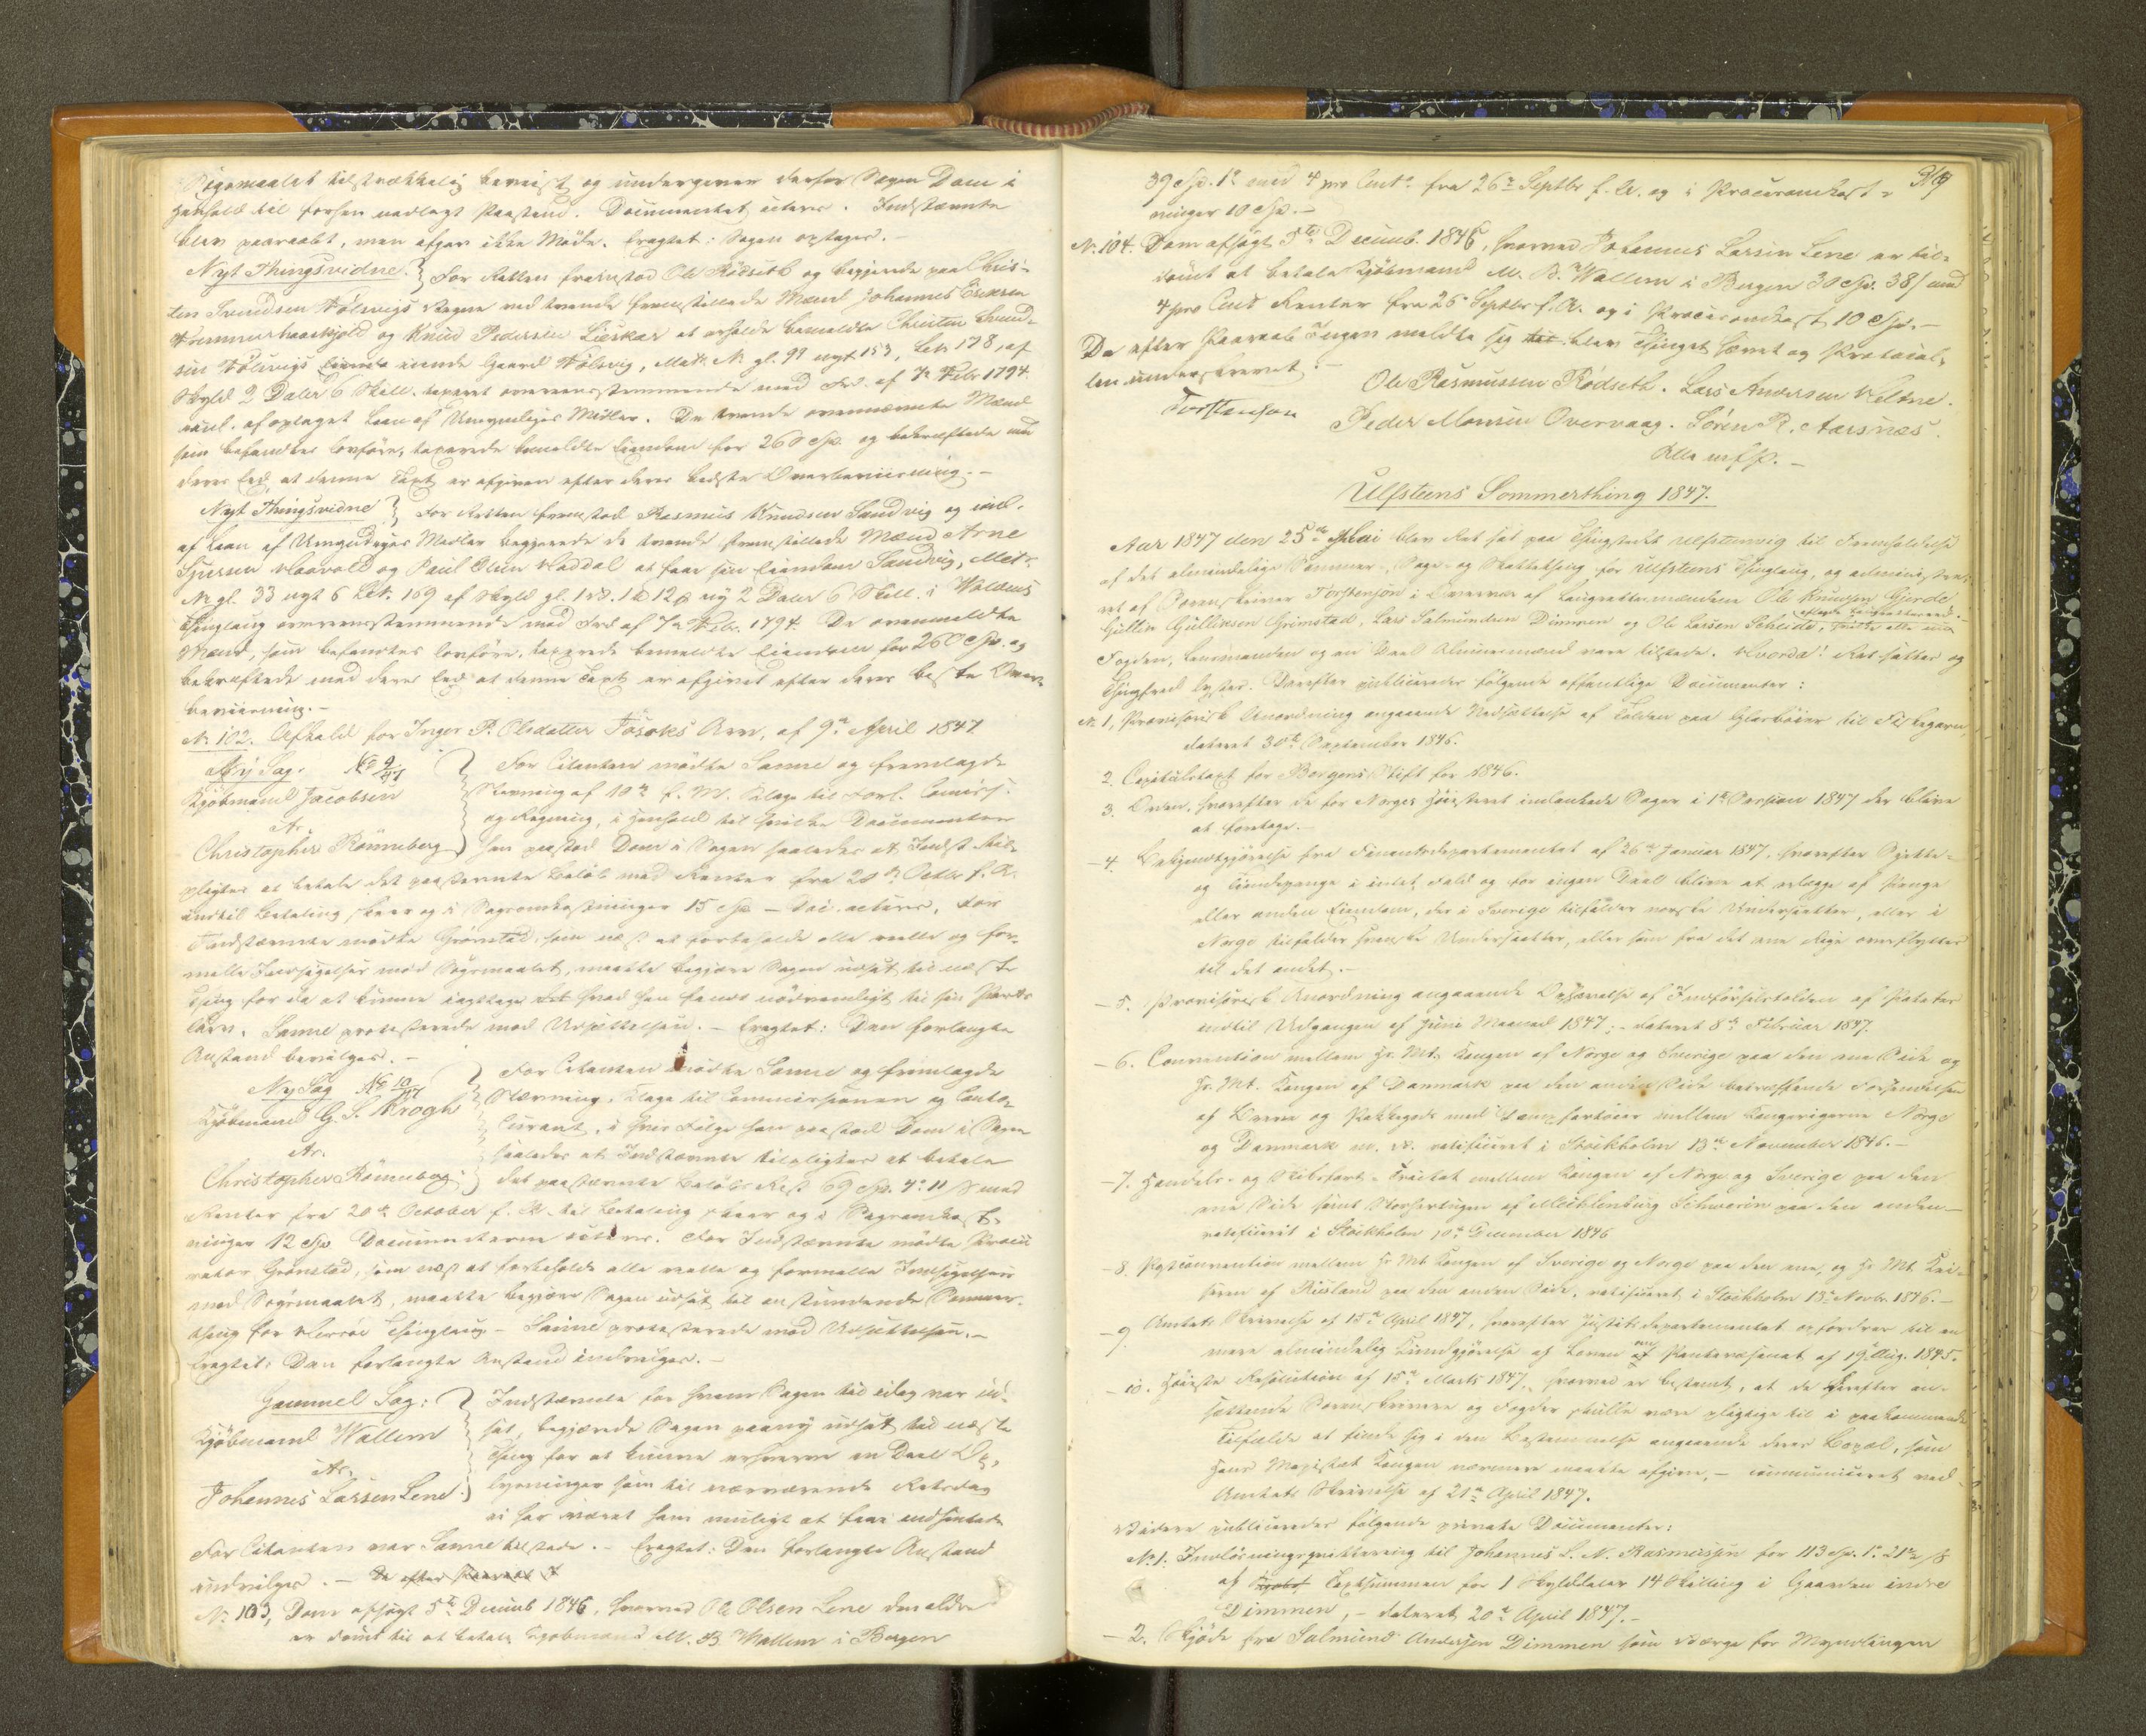 Søgsmaalet tilstrækkelig beviist og undergiver derfor Sagen Dom i
Henhold til forhen nedlagt Paastand. Documentet icteres. Indstævnte
blev paaraabt, men afgav ikke Møde. Eragtet: Sagen optages.
Nyt Thingsvidne. For Retten fremstod Ole Rødseth og begjærede paa Chris-
ten Svendsen Følsvigs Vegne ved tvende fremstillede Mænd Johannes Eriksen
og Knud Pedersen Lieskar at erholde bemeldte Christen Svend-
sen Følsvigs eiende Gaard Følsvig, Matr. No gl. 99 nyt 153, Løb. 178, af
Skyld 2 Daler 6 Skill. taxeret overeensstemmende med Frd. af 7de Febr. 1794
anl. af optaget Laan af Umyndiges Midler. De tvende ovennævnte Mænd
som befandtes lovføre, taxerede bemeldte Eiendom for 260 Spd. og bekræftede med
deres Eed at denne Taxt er afgiven efter deres bedste Overbeviisning.-
Nyt Thingsvidne For Retten fremstod Rasmus Knudsen Sandvig og anl.
af Laan af Umyndiges Midler begjærede de tvende fremstillede Mænd Arne
Sjursen Haavold og Paul Olsen Haddal at faae sin Eiendom Sandvig, Matr.
No gl. 33 nyt 6 Løb. 169 af Skyld gl. 12 ny 2 Daler 6 Skill. i Voldens
Thinglaug overeensstemmende med Frd. af 7de Febr. 1794. De ovenmeldte
Mænd, som befandtes lovføre, taxerede bemeldte Eiendom for 260 Spd. og
bekræftede med deres Eed at denne Taxt er afgivet efter deres beste Over-
beviisning.-
No 102. Afkald for Inger P. Olsdatter Arv, af 9de April 1847
Ny Sag. No 9/47 For Citanten mødte Sanne og fremlagde
Kjøbmand Jacobsen Stevning af 10de f. M. Klage til Forl. Comiss.
og Regning, i Henhold til hvilke Documenter
Christopher Rønneberg han paastod Dom i Sagen saaledes at Indst. til-
pligtes at betale det paastevnte Beløb med Renter fra 20de Octbr. f. A.
indtil Betaling skeer og i Sagsomkostninger 15 Spd. - Doc. acteres. For
Indstævnte mødte Grønstad, som næst at forbeholde alle reelle og for-
melle Indsigelser mod Søgsmaalet, maatte begjære Sagen udsat til næste
Thing for da at kunne iagttage hvad han fandt nødvendigt til sin Parts
Tarv. Sanne protesterede mod Udsettelsen. - Eragtet: Den forlangte
Anstand bevilges.-
Ny Sag No 10/47 For Citanten mødte Sanne og fremlagde
Kjøbmand G. S. Krogh Stævning, Klage til Commissionen og Conto-
Courant, i hver Følge han paastod Dom i Sagen
saaledes at Indstævnte tilpligtes at betale
Christopher Rønneberg det paastævnte Beløbs Rest 69 Spd. 4 11 s med
Renter fra 20de October f. A. til Betaling skeer og i Sagsomkost-
ninger 12 Spd. Documenterne icteres. For Indstævnte mødte Procu-
rator Grønstad, som næst at forbeholde alle reelle og formelle Indsigelser
mod Søgsmaalet, maatte begjære Sagen udsat til anstundende Sommer-
thing for Herrøe Thinglaug - Sanne protesterede mod Udsettelsen.-
Eragtet: Den forlangte Anstand indvilges.-
Gammel Sag: Indstævnte for hvem Sagen til idag var ud-
Kjøbmand Wallem sat, begjærede Sagen paany udsat til næste
Thing for at kunne erhverve en Deel Op-
Johannes Larsen Lene lysninger som til nærværende Retsdag
ei har været ham muligt at faae indhentede
For Citanten var Sanne tilstede.- Eragtet: Den forlangte Anstand
indvilges.- De efter Paaraab I
No 103, Dom afsagt 5te Decemb 1846, hvorved Ole Olsen Lene den ældre
er dømt til at betale Kjøbmand M. B. Wallem i Bergen
39 Spd. 1 med 4 pro Cent fra 26de Septbr. f. A. og i Procesomkost-
ninger 10 Spd.-
No. 104. Dom afsagt 5te Decemb. 1846, hvorved Johannes Larsen Lene er til-
dømt at betale Kjøbmand M. B. Wallem i Bergen 30 Spd. 38 s med
4 pro Cent Renter fra 26de Septbr. f. A. og i Procesomkost 10 Spd.-
Da efter Paaraab Ingen meldte sig blev Thinget hævet og Protocol-
len underskrevet.-
Ole Rasmussen Rødseth. Lars Andersen Veltne.
Torstensen Peder Monsen Overvaag. Søren R. Aarsnæs.
Alle m.f.P.-
Ulfsteens Sommerthing 1847.
Aar 1847 den 25de Mai blev Ret sat paa Thingstedet Ulfsteenvig til Fremholdelse
af det almindelige Sommer-, Sage- og Skattething for Ulfsteens Thinglaug, og administre-
ret af Sorenskriver Torstensen i Overvær af Laugrettesmændene Ole Knudsen Gjerde
Gullin Gulliksen Grimstad, Lars Salmundsen Dimmen og Ole Larsen Scheide,
Fogden, Lensmanden og en Deel Almuesmænd vare tilstede. Hvorda! Ret sattes og
Thingfred lystes. Derefter publiceredes følgende offentlige Documenter:
No 1, Provisorisk Anordning angaaende Nedsættelse af Tolden paa Glaskøier til Fiskegarn,
dateret 30te September 1846.
2. Capitelstaxt for Bergens Stift for 1846.
3. Orden, hvorefter de for Norges Høiesteret indankede Sager i 1ste Session 1847 der blive
at foretage.-
- 4. Bekjendtgjørelse fra Finantsdepartementet af 26de Januar 1847, hvorefter Sjette-
og Tiendepenge i intet Fald og for ingen Deel blive at erlægge af Penge
eller anden Eiendom, der i Sverige tilfalder norske Undersaatter, eller i
Norge tilfalder svenske Undersaatter, eller som fra det ene Rige overflyttes
til det andet.-
- 5. Provisorisk Anordning angaaende Ophævelse af Indførselstolden af Poteter
indtil Udgangen af Juni Maaned 1847;- dateret 8de Februar 1847.
- 6. Convention mellem Hs. Mt. Kongen af Norge og Sverige paa den ene Side og
Hs. Mt. Kongen af Danmark paa den anden Side betræffende Forsendelsen
af Breve og Pakkegods med Dampfartøier mellem Kongerigerne Norge
og Danmark m. v. ratificeret i Stockholm 13de November 1846.-
- 7. Handels- og Skibsfarts-Tractat mellem Kongen af Norge og Sverige paa den
ene Side samt Storhertugen af Mechlenburg Schwerin paa den anden-
ratificeret i Stockholm 10de December 1846
- 8. Postconvention mellem Hs Mt Kongen af Sverige og Norge paa den ene, og Hs Mt. Kei-
seren af Rusland paa den anden Side, ratificeret i Stockholm 13de Novbr. 1846.-
- 9. Amtets Skrivelse af 15de April 1847, hvorefter Justitsdepartementet opfordrer til en
mere almindelig Kundgjørelse af Loven om Pantevæsenet af 19. Aug. 1845.
- 10. Høieste Resolution af 15de Marts 1847, hvorved er bestemt, at de herefter an-
sættende Sorenskrivere og Fogder skulle være pligtige til i paakommende
Tilfælde at finde sig i den Bestemmelse angaaende deres Bopæl, som
Hans Majestæt Kongen nærmere maatte afgive,- communiceret ved
Amtets Skrivelse af 21de April 1847.
Videre publiceredes følgende private Documenter:
No 1. Indløsningsqvittering til Johannes L. N. Rasmussen for 113 Spd. 1. 21 s
af Taxtsummen for 1 Skylddaler 14 Skilling i Gaarden indre
Dimmen,- dateret 20de April 1847.-
- 2. Skjøde fra Salmund Andersen Dimmen som Værge for Myndlingen